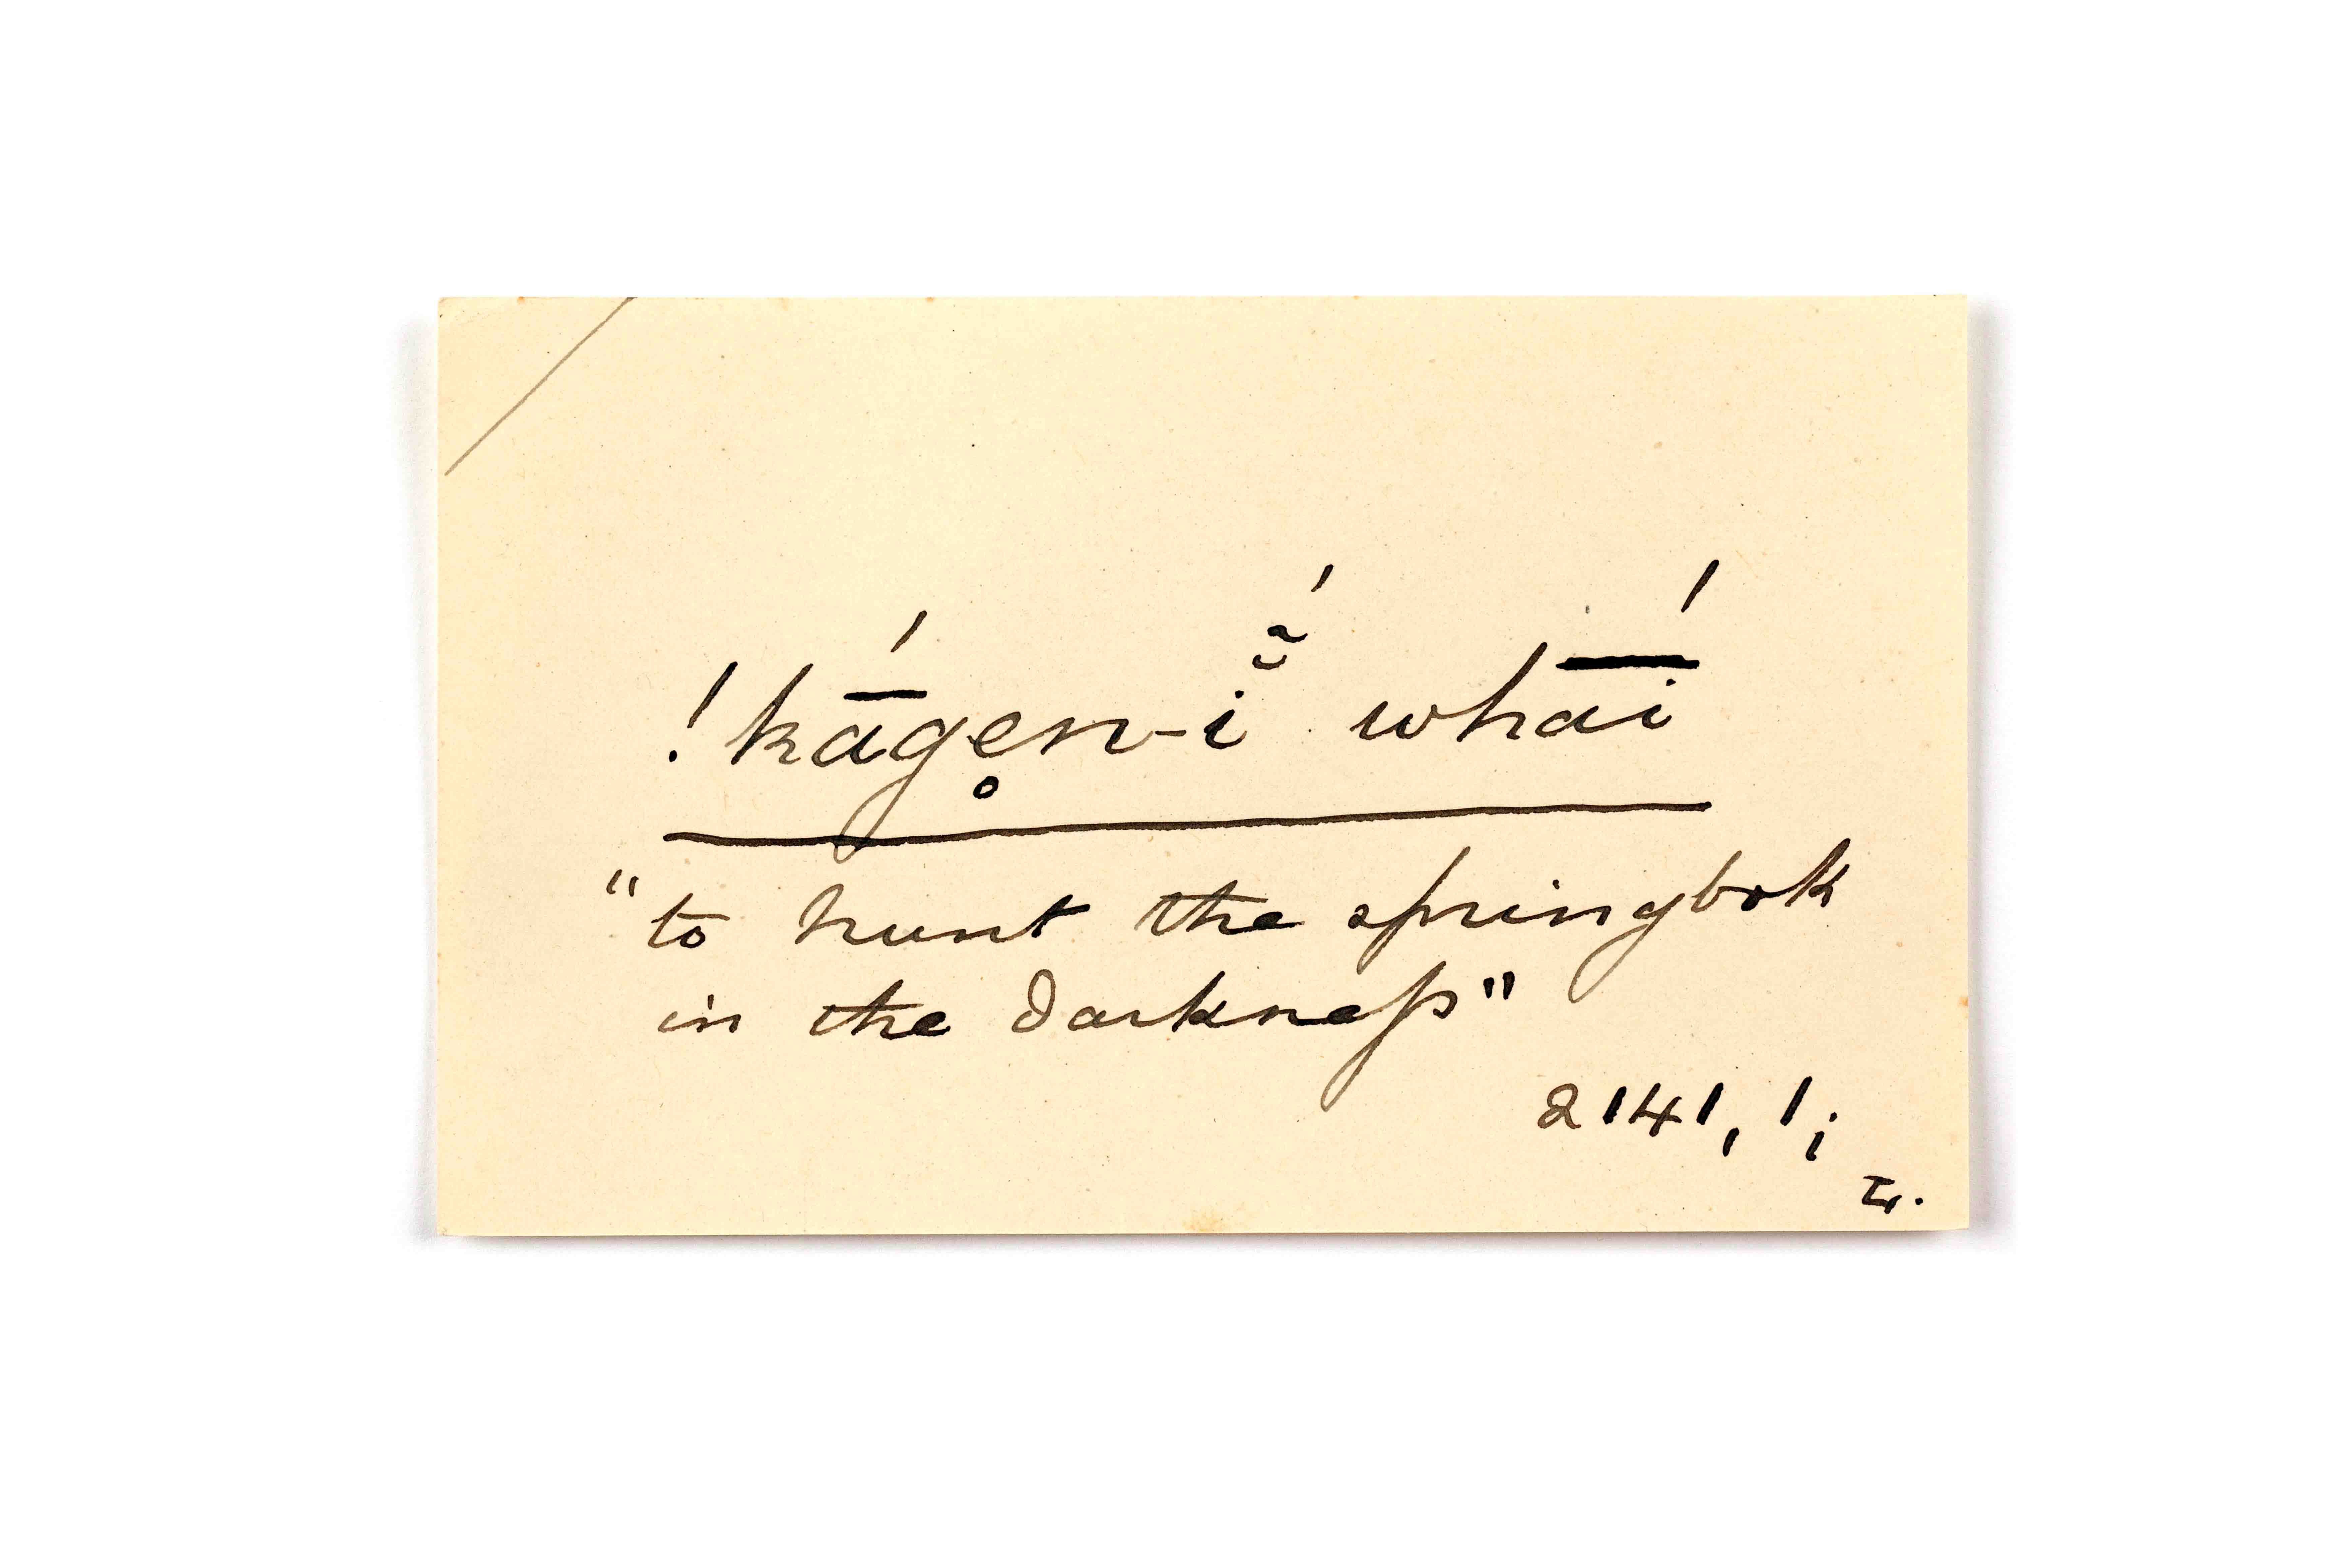 !kā́ge̥n-ĩ̆́ whā́ī
"to hunt the springbok
in the darkneſs"
2141, 1;